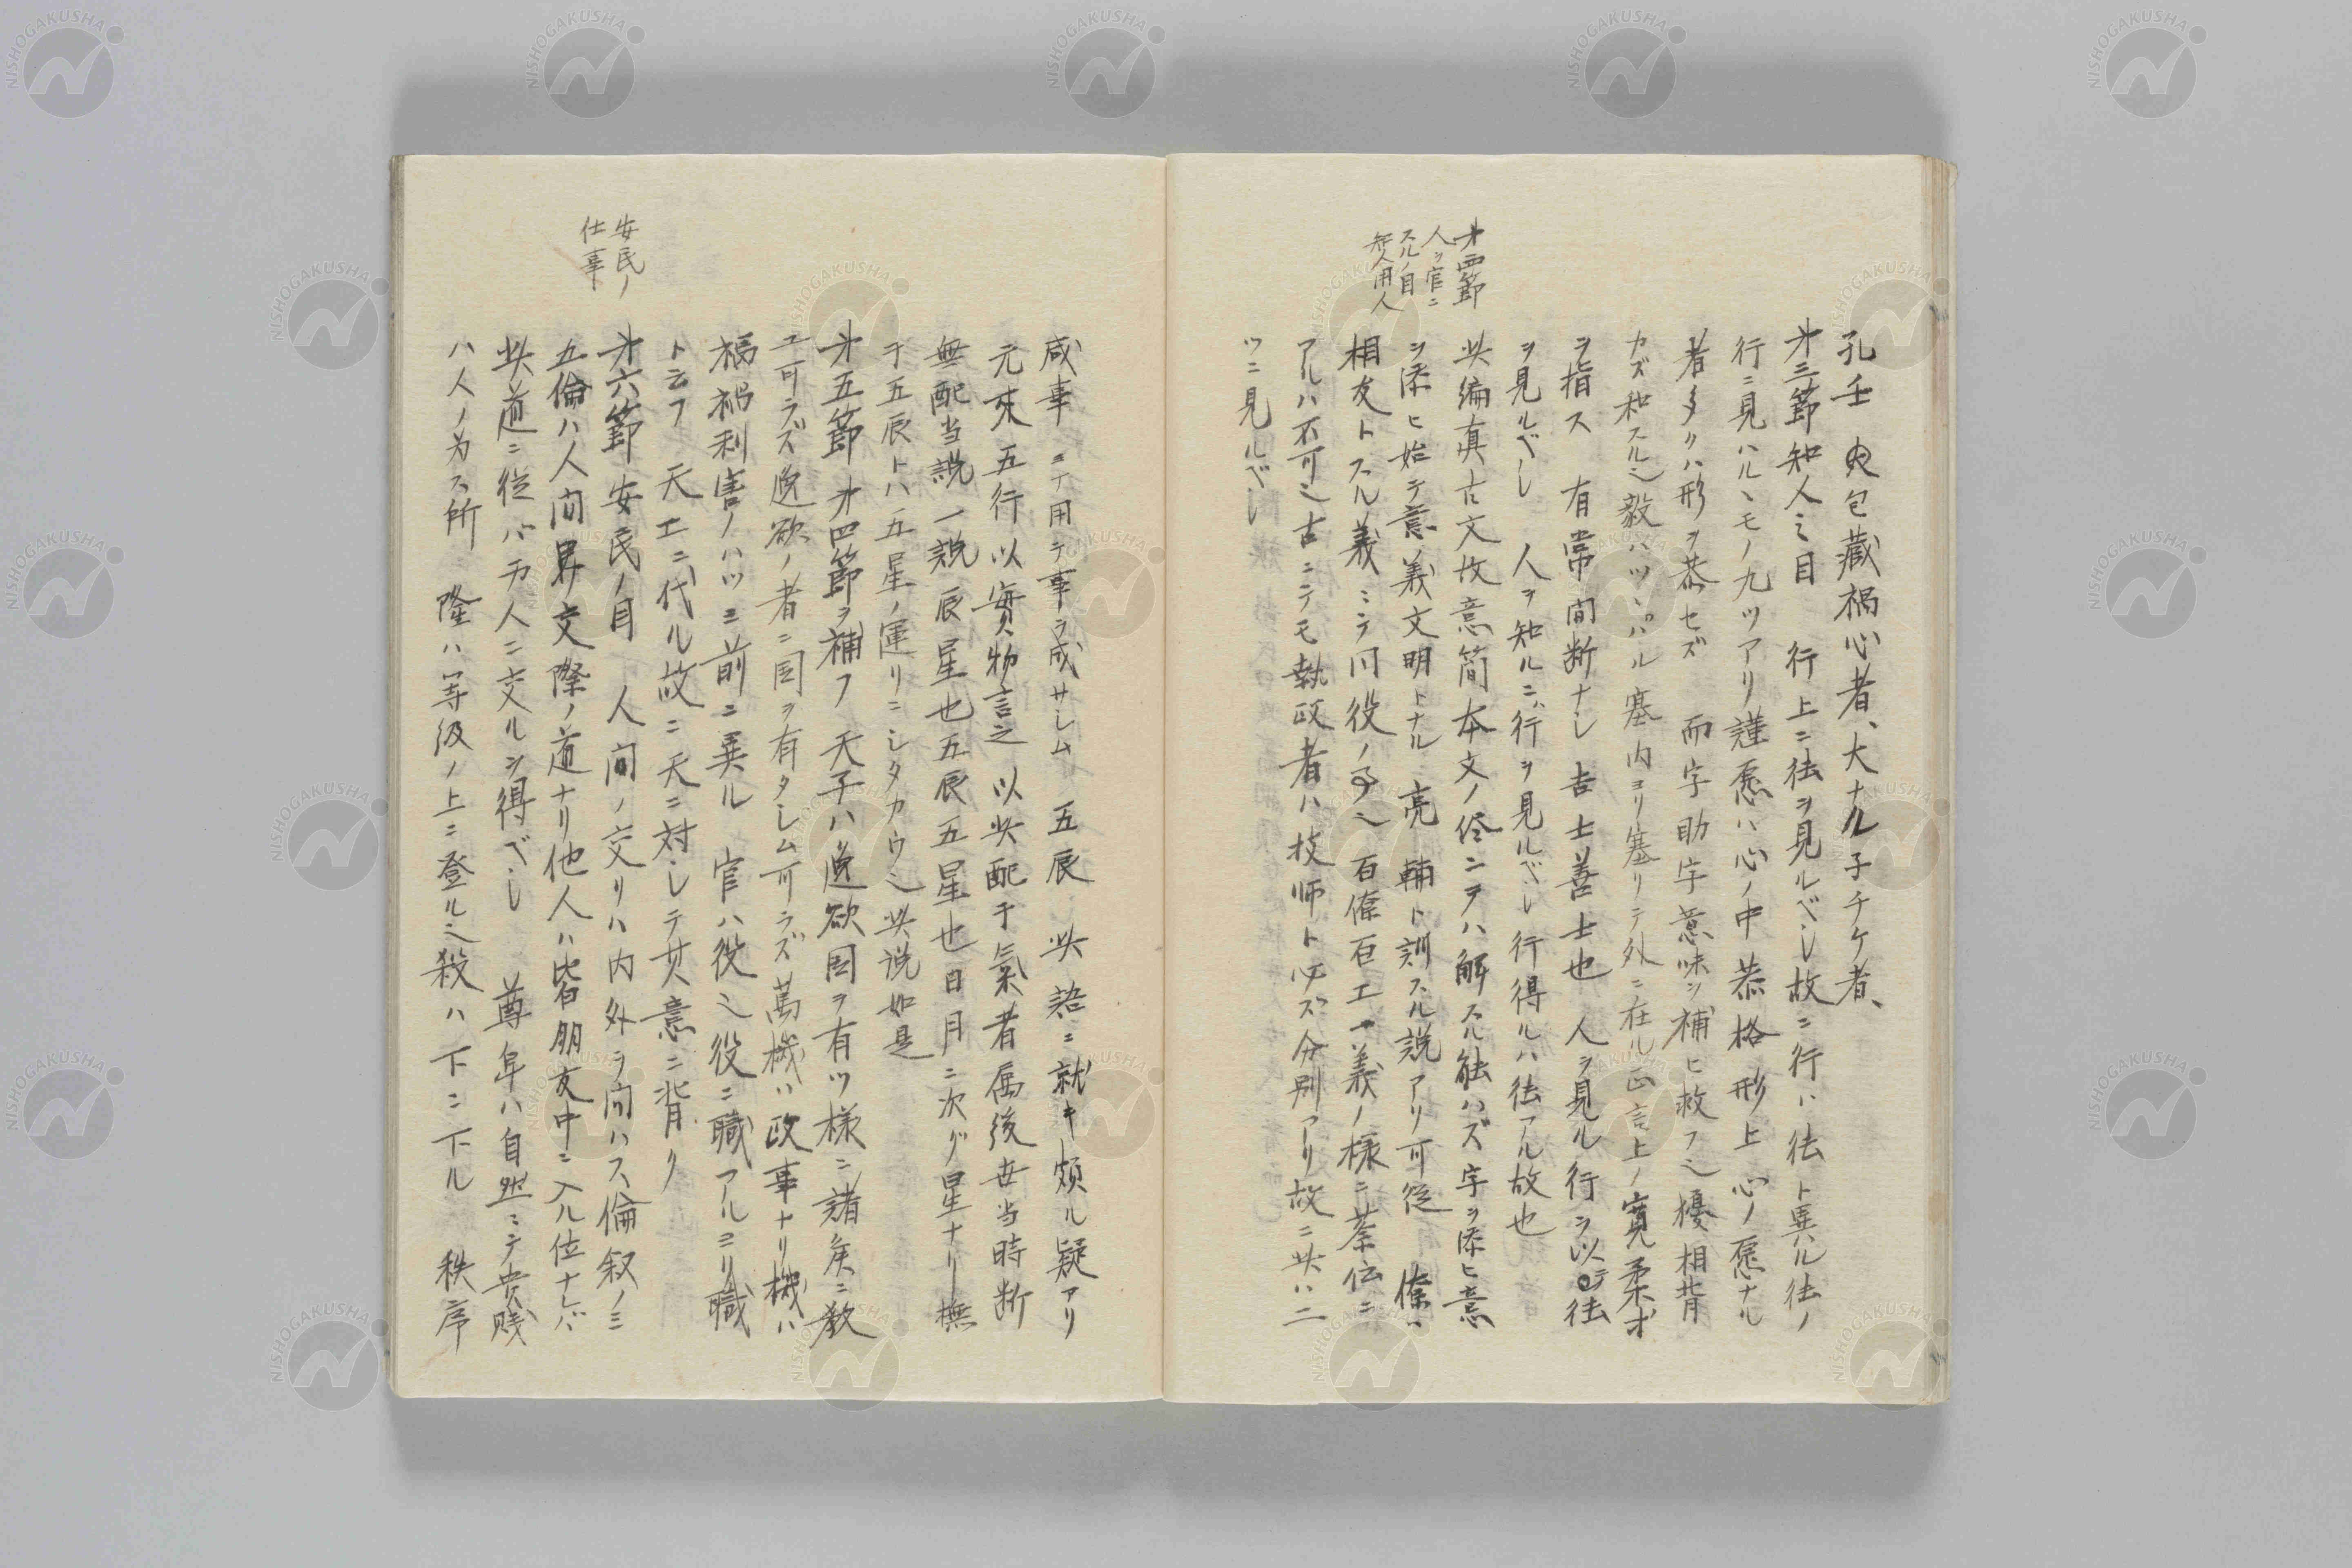 孔壬 内包蔵禍心者、大ナル子チケ者、
才三節知人之目 行上ニ徳ヲ見ルベシ故ニ行ハ徳ト異ル徳ノ
行ニ見ハルヽモノ九ツアリ謹愿ハ心ノ中恭格形上心ノ愿ナル
者多クハ形ヲ恭セズ 而字助字意味ヲ補ヒ救フ也擾相背
カズ和スル也毅ハツッパル塞内ヨリ塞リテ外ニ在ル正言上ノ寛柔才
ヲ指ス 有常間断ナシ 吉士善士也 人ヲ見ル行ヲ以テ徳
ヲ見ルベシ 人ヲ知ルニハ行ヲ見ルベシ行得ルハ徳アル故也
才四節
人ヲ官ニ
スルノ目
知人用人
此編真古文故意簡本文ノ侭ニテハ解スル能ハズ字ヲ添ヒ意
ヲ添ヒ始テ意義文明トナル 亮 輔ト訓スル説アリ可従 僚ハ
相友トスル義 ミテ同役ノ事也 百僚百工一義ノ様ニ蔡伝ニ
アルハ不可也古ニテモ執政者ハ技師ト必ズ分別アリ故ニ此ハ二
ツニ見ルベシ
咸事 ミナ用テ事ヲ成サシム 五辰 此語ニ就キ頗ル疑アリ
元来五行以實物言之 以此配于氣者屬後世当時断
無配当説 一説辰星也五辰五星也日月ニ次グ星ナリ撫
于五辰トハ五星ノ運リニシタカウ也此説如是
才五節 才四節ヲ補フ 天子ハ逸欲国ヲ有ツ様ニ諸矦ニ教
エ可ラズ逸欲ノ者ニ国ヲ有タシム可ラズ萬機ハ政事ナリ機ハ
禍福利害ノハツミ前ニ異ル 官ハ役也役ニ職アルヨリ職
ト云フ 天工ニ代ル故ニ天ニ対シテ其意ニ背ク
安民ノ
仕事
才六節安民ノ目 人間ノ交リハ内外ヲ問ハス倫叙ノミ
五倫ハ人間界交際ノ道ナリ他人ハ皆朋友中ニ入ル位ナレバ
此道ニ従バ万人ニ交ルヲ得ベシ 尊卑ハ自然ニテ貴賤
ハ人ノ為ス所 隆ハ等級ノ上ニ登ル也殺ハ下ニ下ル 秩序